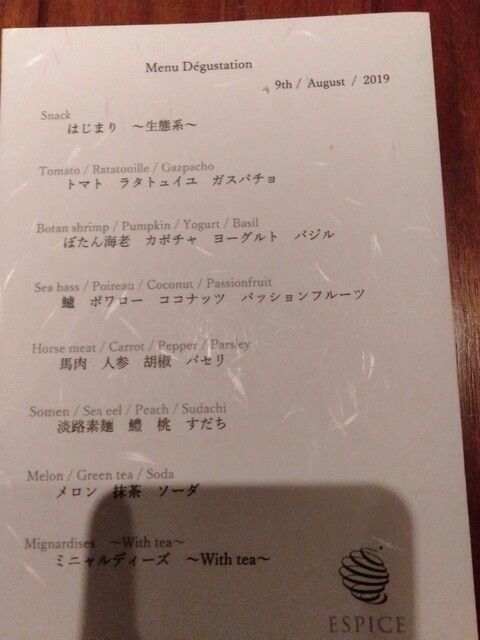 Menu Dégustation
9th / August / 2019
Snack
はじまり ～生態系～
Tomato / Ratatouille / Gazpacho
トマト ラタトュイユ ガスパチョ
Botan shrimp / Pumpkin / Yogurt / Basil
ぼたん海老 カボチャ ヨーグルト バジル
Sea bass / Poireau / Coconut / Passionfruit
鱸 ポワロー ココナッツ パッションフルーツ
Horse meat / Carrot / Pepper / Parsley
馬肉 人参 胡椒 パセリ
Somen / Sea eel / Peach / Sudachi
淡路素麺 鱧 桃 すだち
Melon / Green tea / Soda
メロン 抹茶 ソーダ
Mignardises ～With tea～
ミニャルディーズ ～With tea～
ESPICE